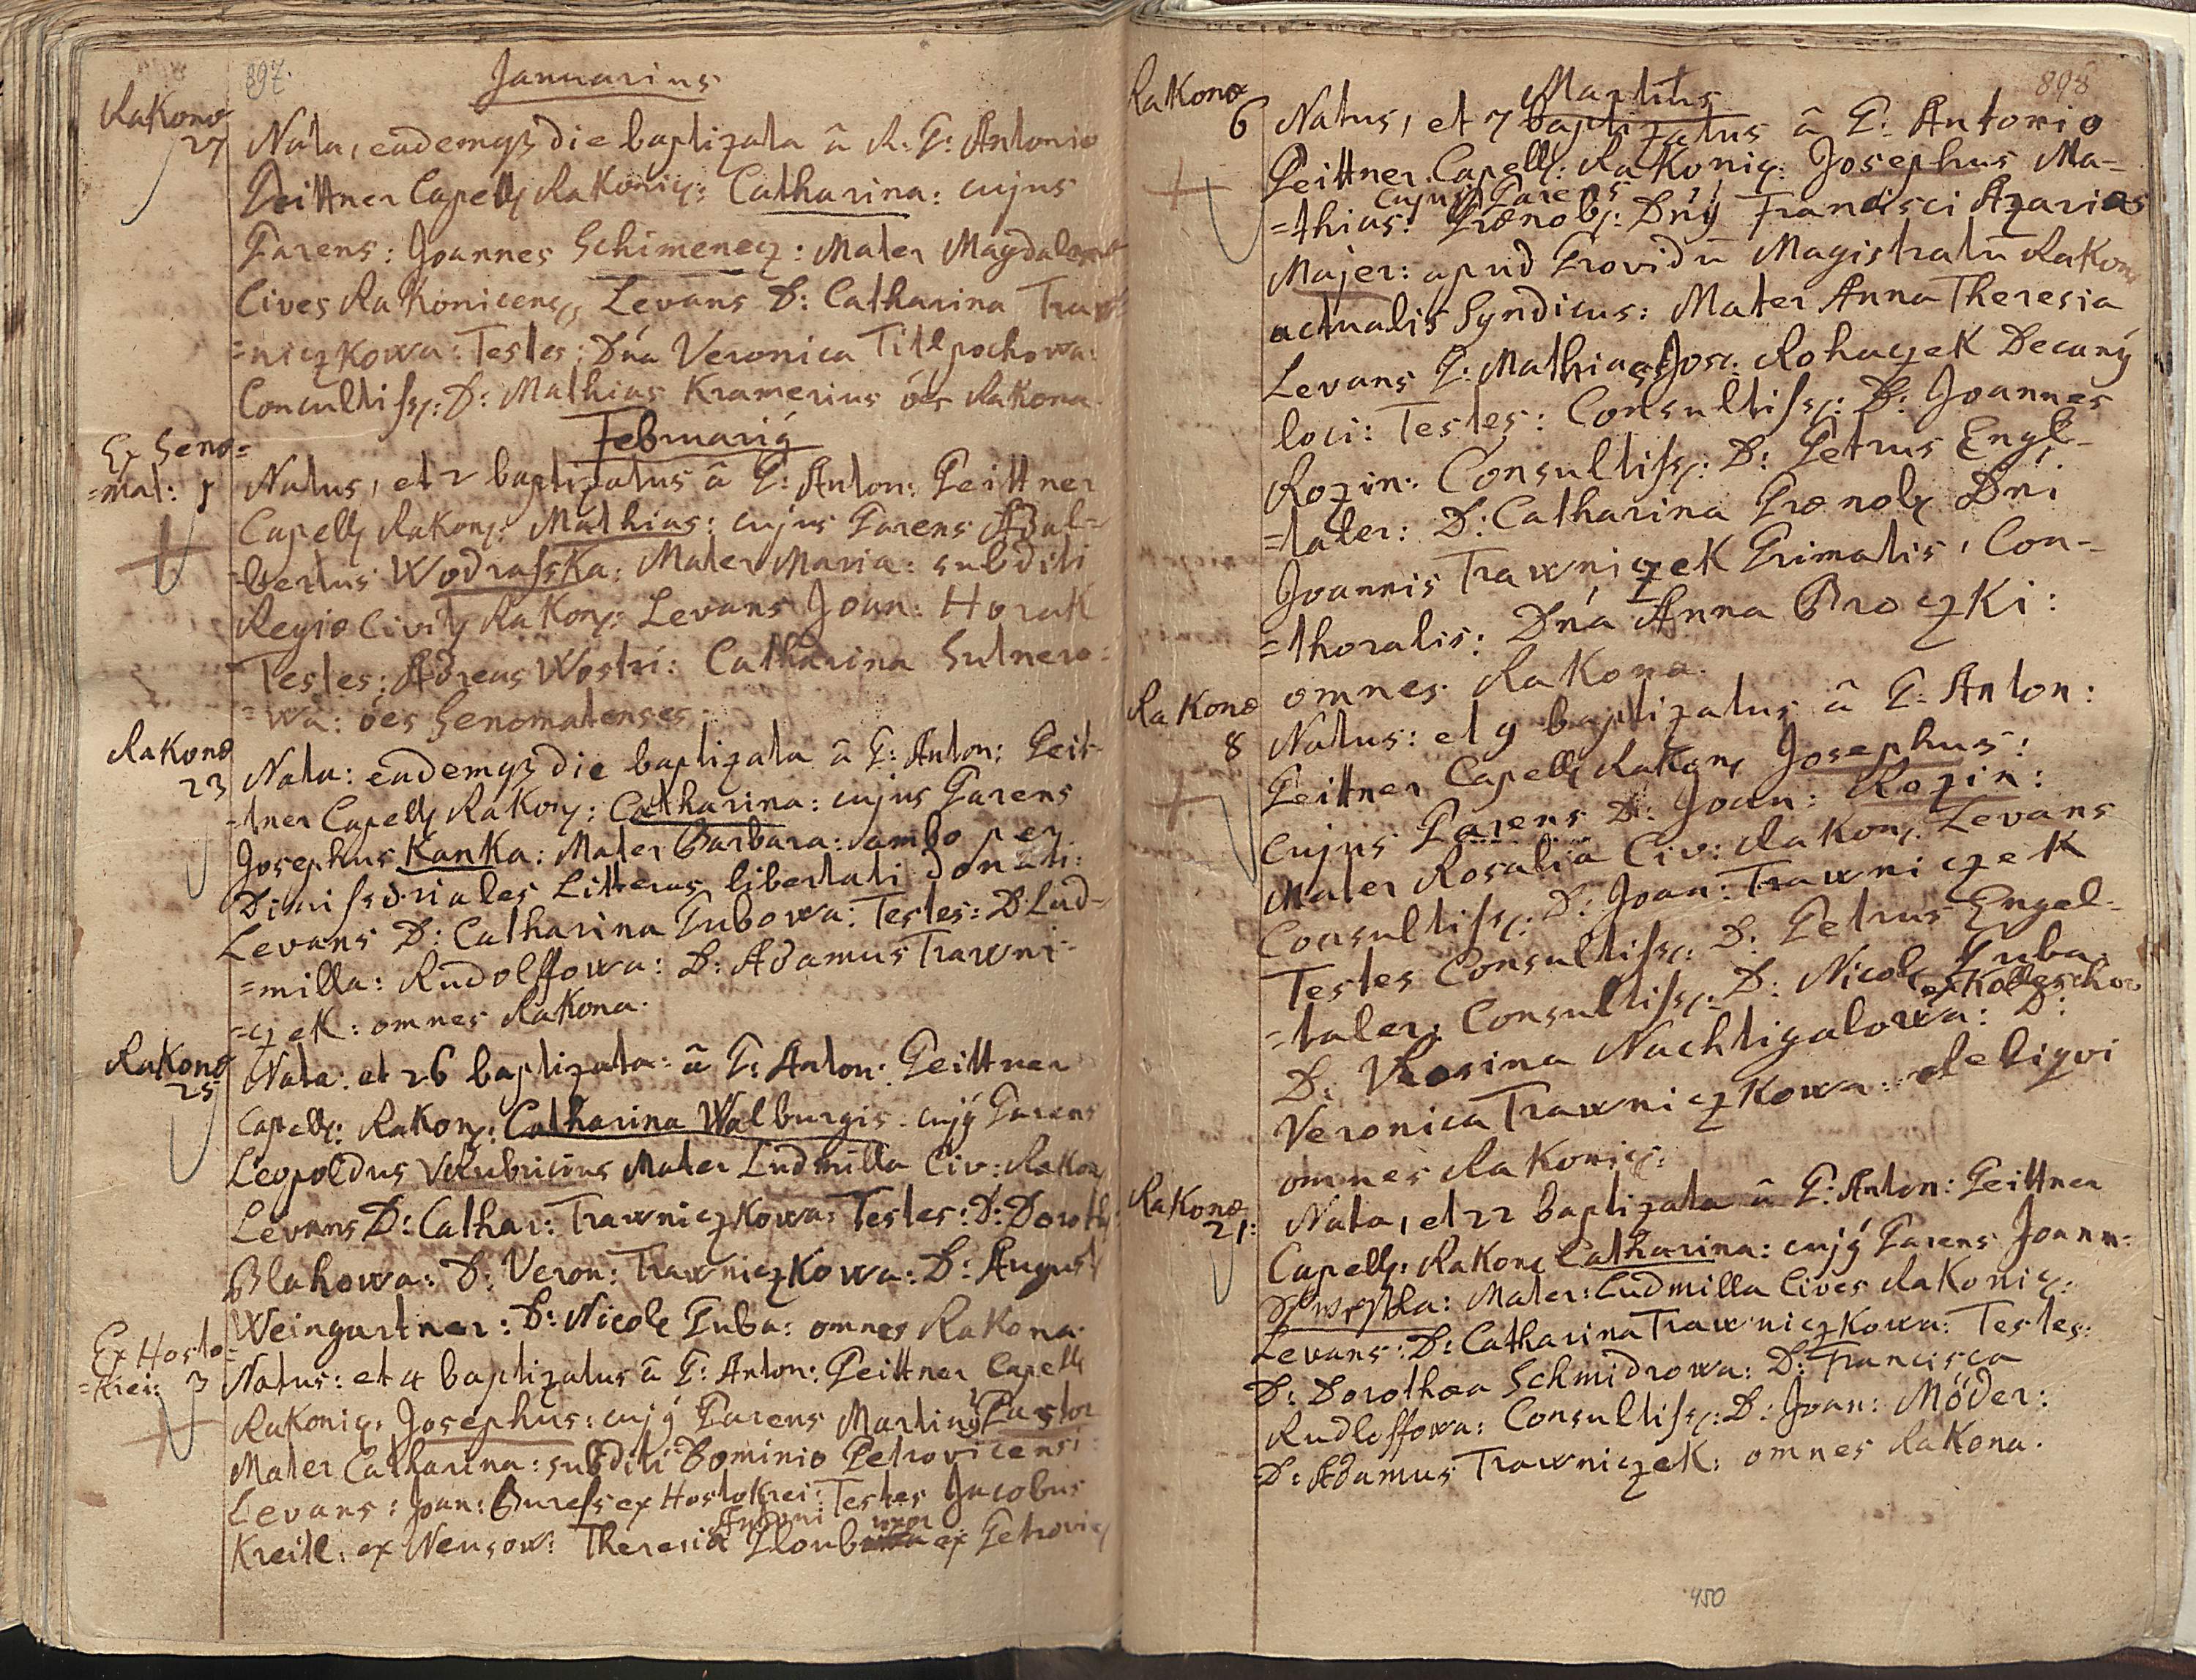 897.
Januarius
Rakonæ
27 Nata, eademqz die baptizata â R: P: Antonio
Peittner Capell: Rakonicz: Catharina: cujus
Parens: Joannes Schimenecz: Mater Magdalena
Cives Rakonicens, Levans D: Catharina Traw=
=niczkowa: Testes: Dna Veronica Titlpochowa:
Concultiss: D: Mathias Kramerius oes Rakona.
Februarij
Ex Seno=
=mat: 1 Natus, et 2 baptizatus â P: Anton: Peittner
Capell: Rakon: Mathias: cujus Parens Adal=
=bertus Wodrasska: Mater Maria: subditi
Regiæ Civit: Rakon: Levans Joan: Horak
Testes: Adreas Wostri: Catharina Sutnero=
=wa: oes Senomatenses.
Rakonæ
23 Nata: eademqz die baptizata â P: Anton: Peit=
=tner Capell: Rakon: Catharina: cujus Parens
Josephus Kanka: Mater Barbara: ambo per
Dimissoriales Litteras libertati donati:
Levans D: Catharina Pubowa: Testes: D: Lud=
=milla: Rudolffowa: D: Adamus Trawni=
=czek: omnes Rakona.
Rakonæ
25 Nata: et 26 baptizata: â P: Anton: Peittner
Capell: Rakon: Catharina Walburgis: cujq Parens
Leopoldus Mater Ludmilla Civ: Rakon
Levans D: Cathar: Trawniczkowa: Testes: D: Doroth:
Blahowa: D: Veron: Trawniczkowa: D: August
Weingartner: D: Nicol: Puba: omnes Rakona.
Ex Hosto=
=krei: 3 Natus: et 4 baptizatus â P: Anton: Peittner Capell
Rakonicz: Josephus: cujq Parens Martinq Pastor
Mater Catharina: subditi Dominio Petrovicensi
Levans: Joan: Buress ex Hostokrei: Testes Jacobus
Kreitl: ex Neusow: Theresia Antoni Hloub uxor ex Petrovicz
898
Martius
Rakonæ
6 Natus, et 7 baptizatus â P: Antonio
Peittner Capell: Rakonicz: Josephus Ma=
=thias: cujus Parens Prænob: Dnq Francisci Azarias
Majer: apud Providu Magistratu Rakon
actualis Syndicus: Mater Anna Theresia
Levans P: Mathias Jos: Rohaczek Decanq
loci: Testes: Consultiss: D: Joannes
Rozin: Consultiss: D: Petrus Engl=
=taler: D: Catharina Prænob: Dni
Joannis Trawniczek Primatis, Con=
=thoralis: Dna Anna Broczki:
omnes Rakona.
Rakonæ
8 Natus: et 9 baptizatus â P: Anton:
Peittner Capell: Rakon: Josephus:
cujus Parens D: Joan: Rozin:
Mater Rosalia Civ: Rakon: Levans
Consultiss: D: Joan: Trawniczek
Testes Consultiss: D: Petrus Engel=
=taler: Consultiss: D: Nicol: Puba.
D: Rosina Nachtigalowa: ex Kolleschow D:
Veronica Trawniczkowa: reliqvi
omnes Rakonicz:
Rakonæ
21: Nata, et 22 baptizata â P: Anton: Peittner
Capell: Rakon: Catharina: cujq Parens Joann:
Mater: Ludmilla Cives Rakonicz:
Levans: D: Catharina Trawniczkowa: Testes:
D: Dorothea Schmidrowa: D: Francisca
Rudloffowa: Consultiss: D: Joan: Möder:
D: Adamus Trawniczek: omnes Rakona.
450